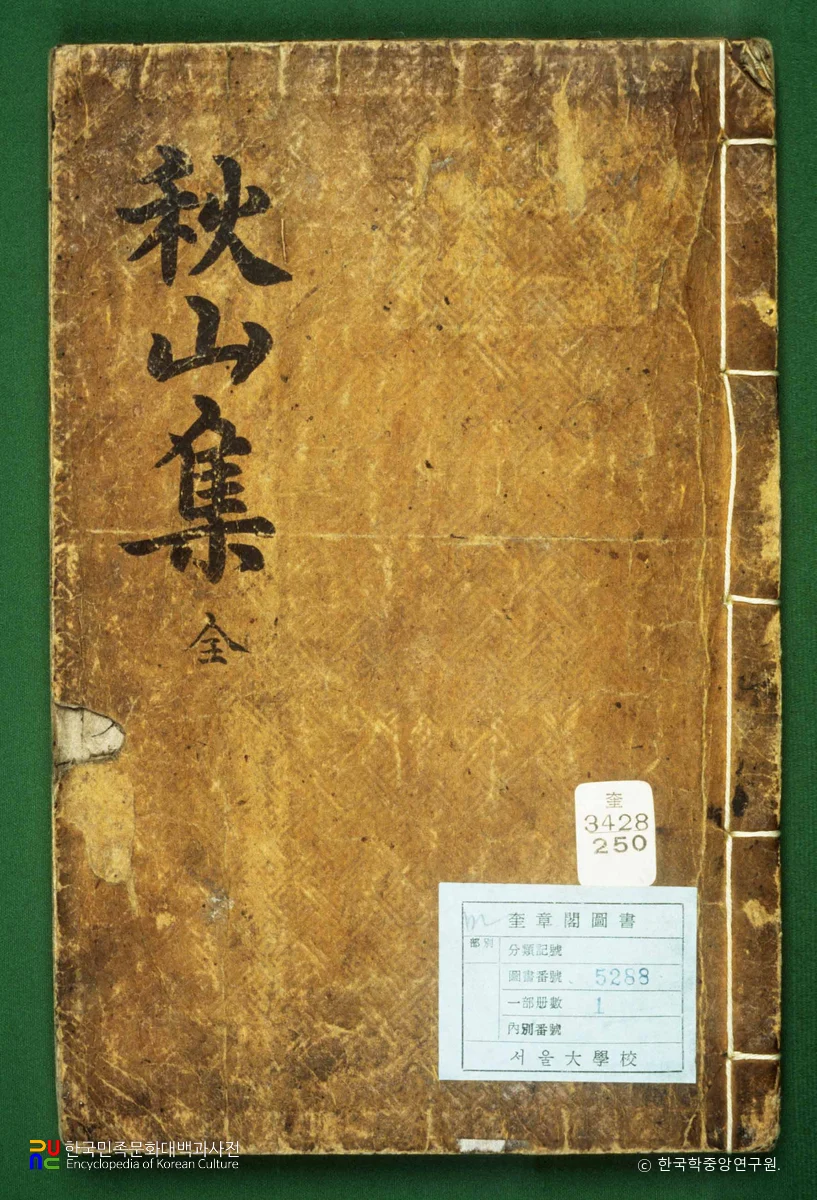 秋山集
全
奎
3428
250
奎章閣圖書
部別
分類記號
圖書番號 5288
一部册數 1
內別番號
서울大學校
한국민족문화대백과사전
Encyclopedia of Korean Culture
© 한국학중앙연구원.